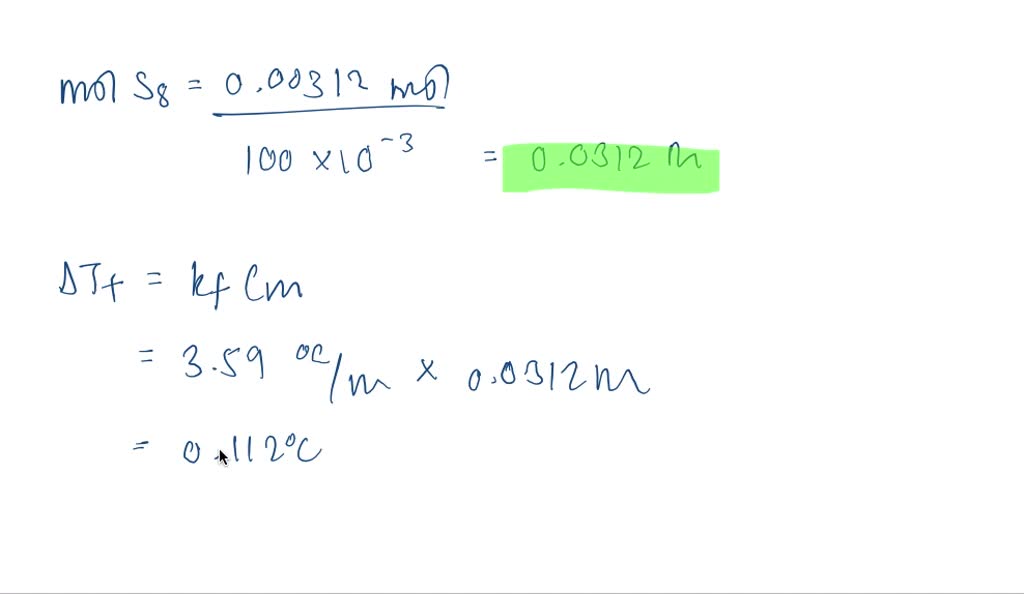 mol S8 = 0.00312 mol
100 x 10^-3 = 0.0312 m
ΔTf = kf Cm
= 3.59 °C/m x 0.0312 m
= 0.112°C